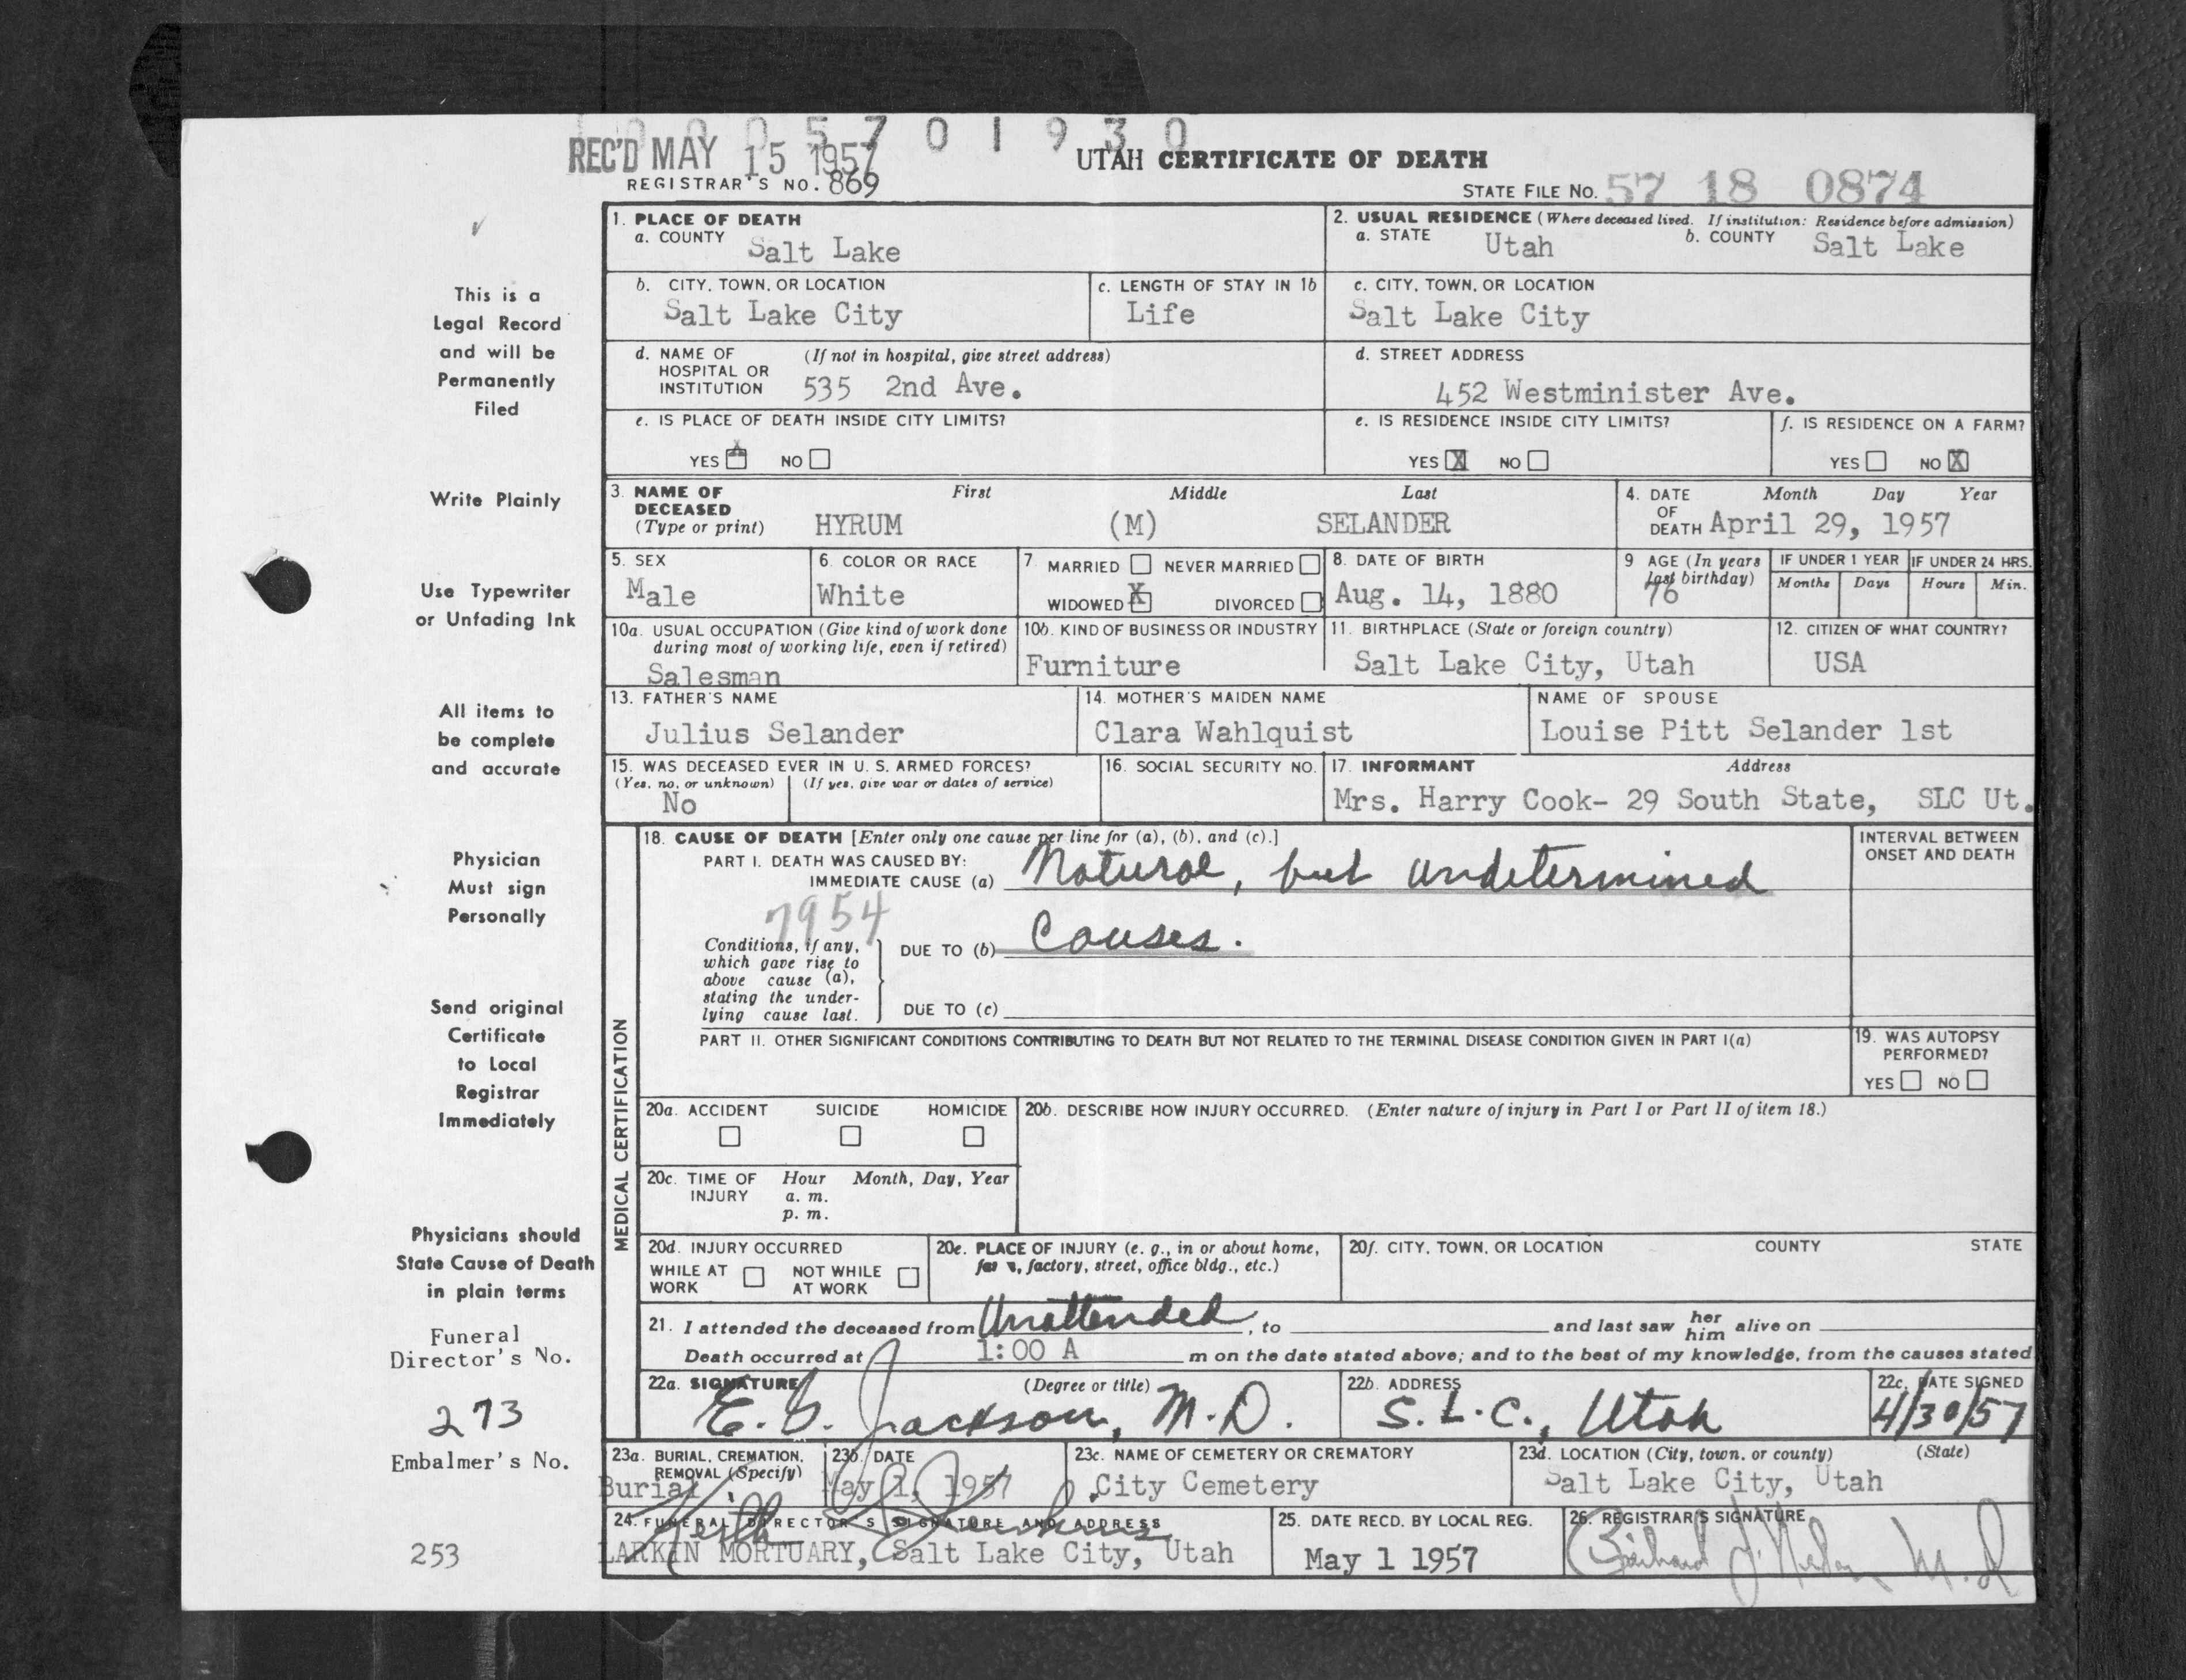 0 0 0 5 7 0 1 9 3 0
REC'D MAY 15 1957
UTAH CERTIFICATE OF DEATH
REGISTRAR'S NO. 869
STATE FILE NO. 57 18 0874
This is a
Legal Record
and will be
Permanently
Filed
Write Plainly
Use Typewriter
or Unfading Ink
All items to
be complete
and accurate
Physician
Must sign
Personally
Send original
Certificate
to Local
Registrar
Immediately
Physicians should
State Cause of Death
in plain terms
Funeral
Director's No.
273
Embalmer's No.
253
1. PLACE OF DEATH
a. COUNTY Salt Lake
2. USUAL RESIDENCE (Where deceased lived. If institution: Residence before admission)
a. STATE Utah b. COUNTY Salt Lake
b. CITY, TOWN, OR LOCATION
Salt Lake City
c. LENGTH OF STAY IN 1b
Life
c. CITY, TOWN, OR LOCATION
Salt Lake City
d. NAME OF (If not in hospital, give street address)
HOSPITAL OR
INSTITUTION 535 2nd Ave.
d. STREET ADDRESS
452 Westminister Ave.
e. IS PLACE OF DEATH INSIDE CITY LIMITS?
YES X NO
e. IS RESIDENCE INSIDE CITY LIMITS?
YES X NO
f. IS RESIDENCE ON A FARM?
YES NO X
3. NAME OF First Middle Last
DECEASED
(Type or print) HYRUM (M) SELANDER
4. DATE Month Day Year
OF
DEATH April 29, 1957
5. SEX
Male
6. COLOR OR RACE
White
7. MARRIED NEVER MARRIED
WIDOWED X DIVORCED
8. DATE OF BIRTH
Aug. 14, 1880
9 AGE (In years
last birthday)
76
IF UNDER 1 YEAR
Months Days
IF UNDER 24 HRS.
Hours Min.
10a. USUAL OCCUPATION (Give kind of work done
during most of working life, even if retired)
Salesman
10b. KIND OF BUSINESS OR INDUSTRY
Furniture
11. BIRTHPLACE (State or foreign country)
Salt Lake City, Utah
12. CITIZEN OF WHAT COUNTRY?
USA
13. FATHER'S NAME
Julius Selander
14. MOTHER'S MAIDEN NAME
Clara Wahlquist
NAME OF SPOUSE
Louise Pitt Selander 1st
15. WAS DECEASED EVER IN U. S. ARMED FORCES?
(Yes, no, or unknown) (If yes, give war or dates of service)
No
16. SOCIAL SECURITY NO.
17. INFORMANT Address
Mrs. Harry Cook- 29 South State, SLC Ut.
MEDICAL CERTIFICATION
18. CAUSE OF DEATH [Enter only one cause per line for (a), (b), and (c).]
PART I. DEATH WAS CAUSED BY:
IMMEDIATE CAUSE (a) Natural, but undetermined
7954
Conditions, if any,
which gave rise to
above cause (a),
stating the under-
lying cause last.
DUE TO (b) Causes.
DUE TO (c)
INTERVAL BETWEEN
ONSET AND DEATH
PART II. OTHER SIGNIFICANT CONDITIONS CONTRIBUTING TO DEATH BUT NOT RELATED TO THE TERMINAL DISEASE CONDITION GIVEN IN PART I(a)
19. WAS AUTOPSY
PERFORMED?
YES NO
20a. ACCIDENT SUICIDE HOMICIDE
20b. DESCRIBE HOW INJURY OCCURRED. (Enter nature of injury in Part I or Part II of item 18.)
20c. TIME OF Hour Month, Day, Year
INJURY a. m.
p. m.
20d. INJURY OCCURRED
WHILE AT NOT WHILE
WORK AT WORK
20e. PLACE OF INJURY (e. g., in or about home,
farm, factory, street, office bldg., etc.)
20f. CITY, TOWN, OR LOCATION COUNTY STATE
21. I attended the deceased from Unattended, to and last saw her him alive on
Death occurred at 1:00 A m on the date stated above; and to the best of my knowledge, from the causes stated
22a. SIGNATURE (Degree or title)
E. G. Jackson, M.D.
22b. ADDRESS
S.L.C., Utah
22c. DATE SIGNED
4/30/57
23a. BURIAL, CREMATION,
REMOVAL (Specify)
Burial
23b. DATE
May 1, 1957
23c. NAME OF CEMETERY OR CREMATORY
City Cemetery
23d. LOCATION (City, town, or county) (State)
Salt Lake City, Utah
24. FUNERAL DIRECTOR'S SIGNATURE AND ADDRESS
LARKIN MORTUARY, Salt Lake City, Utah
25. DATE RECD. BY LOCAL REG.
May 1 1957
26. REGISTRAR'S SIGNATURE
M.D